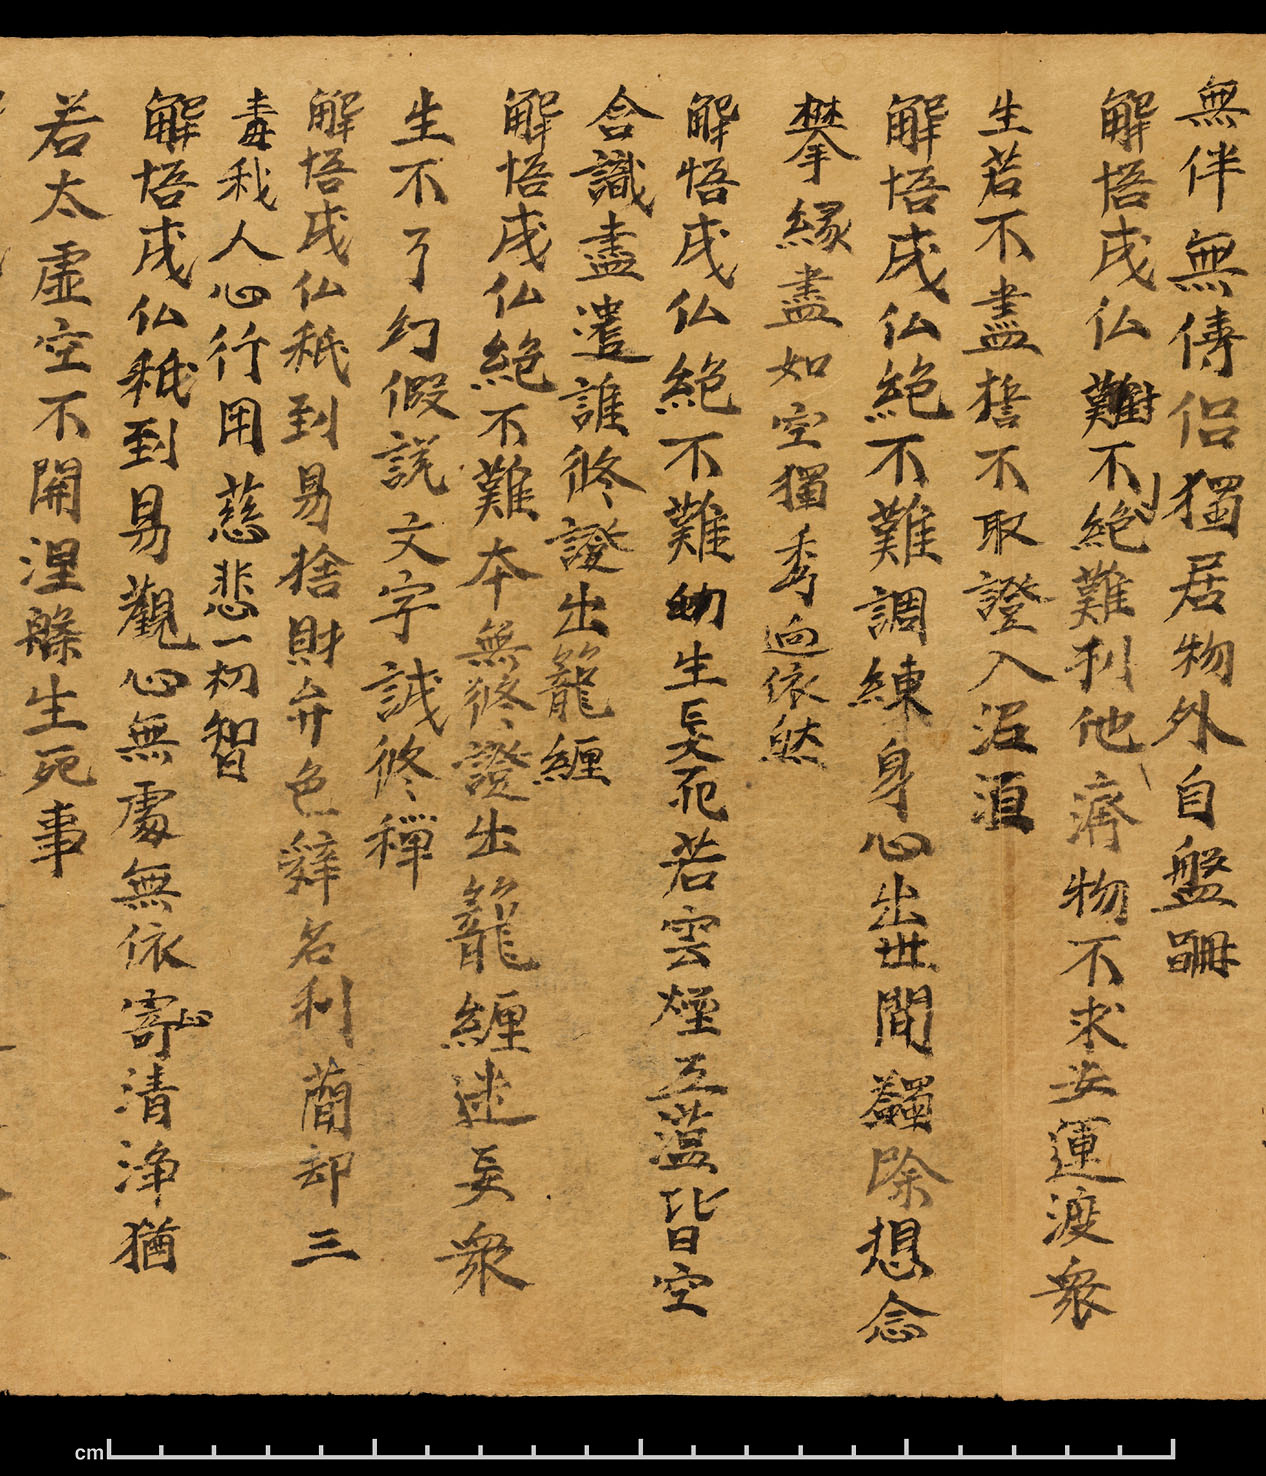 無伴無儔侶獨居物外自盤跚
解悟成仏難不絕難利他濟物不求安運渡衆
生若不盡擔不取證入泥洹
解悟成仏絕不難調練身心出世間蠲除想念
攀緣盡如空獨秀迥依然
解悟成仏絕不難的生長死若雲煙五藴皆空
含識盡遣誰修證出籠纏
解悟成仏絕不難本無修證出籠纏迷妄衆
生不了幻假説文字誡修禪
解悟成仏秪到易捨財弁色辭名利蕳却三
毒我人心行用慈悲一切智
解悟成仏秪到易觀心無處無依寄心清淨猶
若太虛空不開涅槃生死事